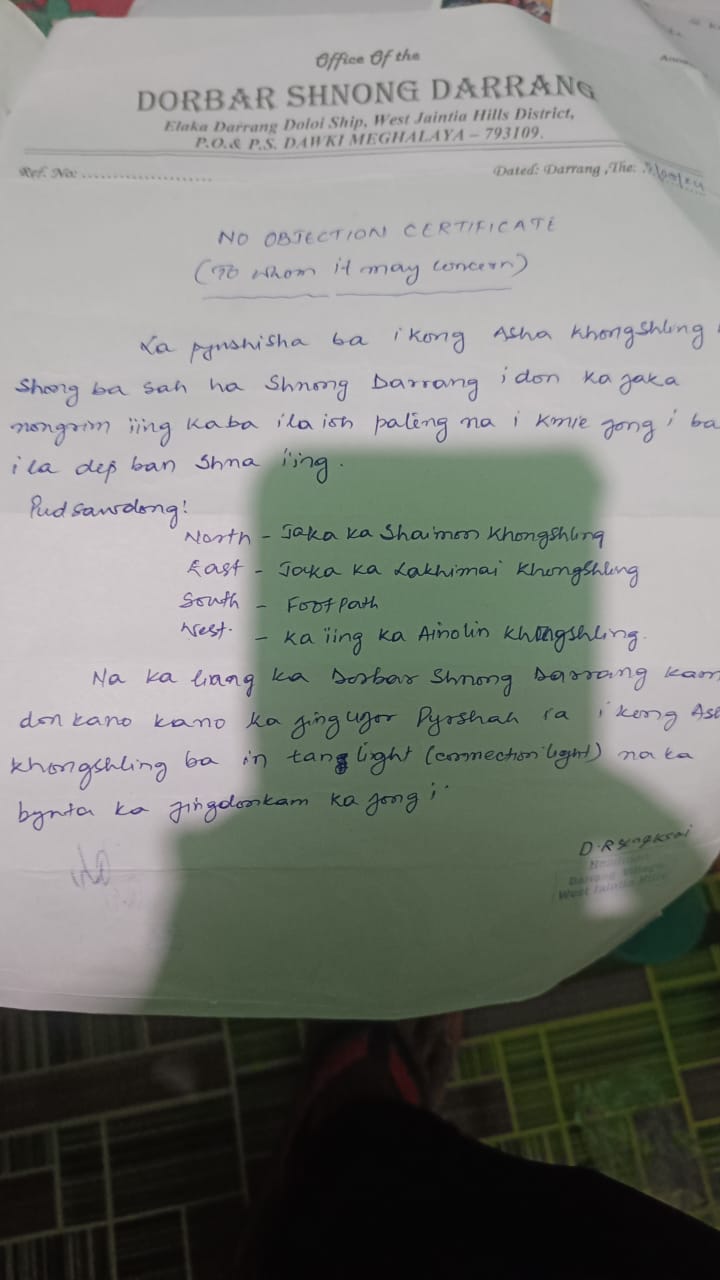 Office Of the
DORBAR SHNONG DARRANG
Elaka Darrang Doloi Ship, West Jaintia Hills District,
P.O.& P.S. DAWKI MEGHALAYA – 793109.
Ref. No: ......................
Dated: Darrang ,The:
NO OBJECTION CERTIFICATE
(To whom it may concern)
La pynshisha ba i kong Asha Khongshling
Shong ba sah ha Shnong Darrang i don ka jaka
nongrim iing kaba ila ioh pateng na i kmie jong i ba
i la dep ban Shna iing.
Pud sawdong:
North - Jaka ka Shaimon Khongshling
East - Jaka ka Lakhimai Khongshling
South - Foot path
West. - Ka iing ka Ainolin Khongshling.
Na ka liang ka Dorbar Shnong Darrang kam
don kano kano ka jingujor Pyrshah ia i kong
Khongshling ba in tang light (connection light) na ka
bynta ka jingdonkam ka jong i.
West Jaintia Hills